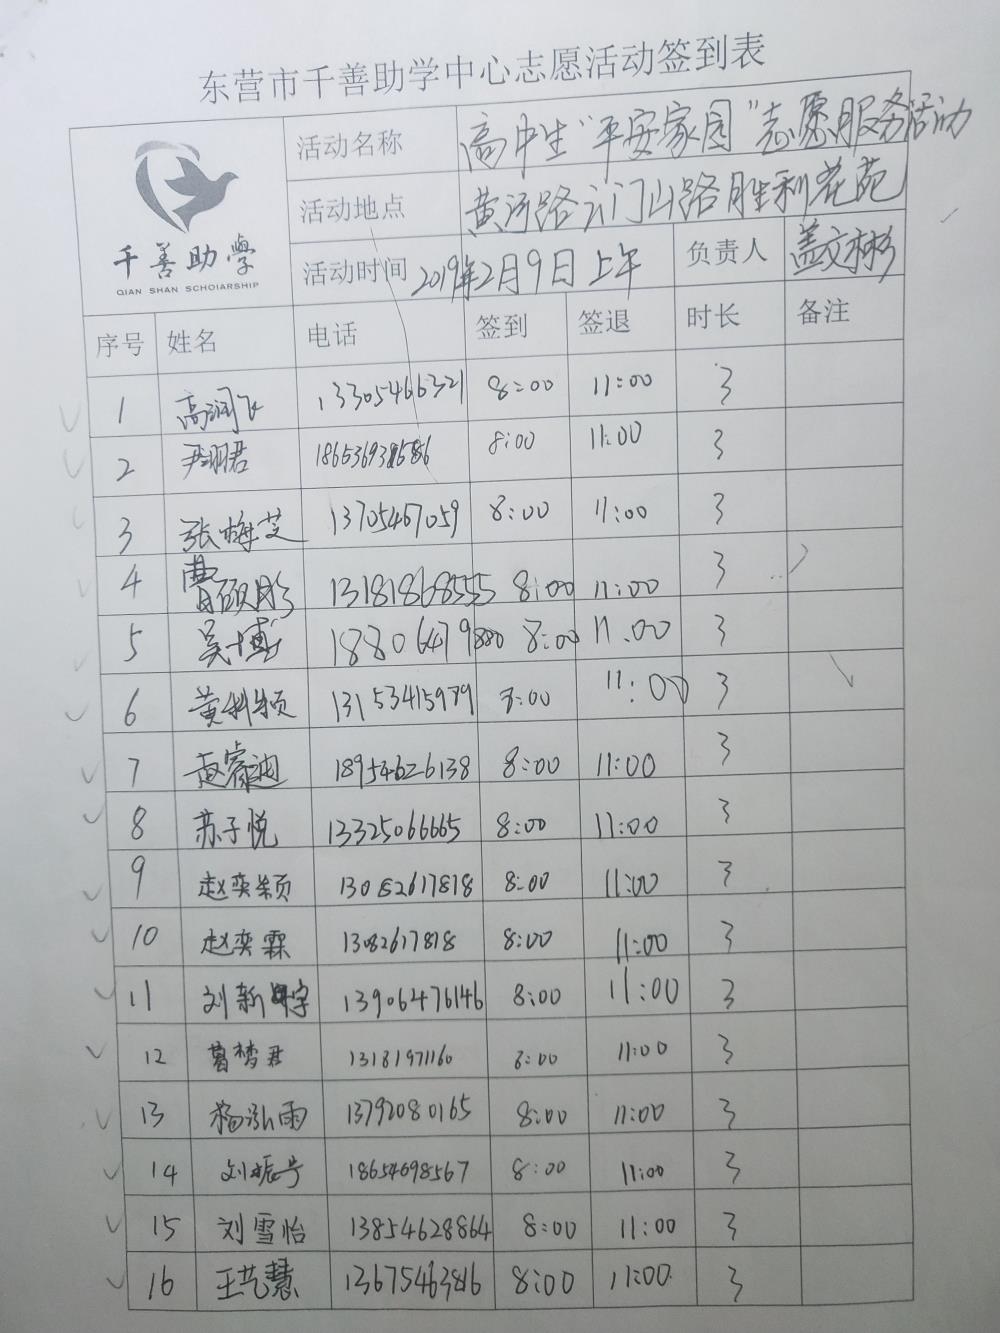 东营市千善助学中心志愿活动签到表
千善助学
QIAN SHAN SCHOLARSHIP
活动名称 高中生“平安家园”志愿服务活动
活动地点 黄河路云门山路胜利花苑
活动时间 2019年2月9日上午 负责人 盖文彬
序号 姓名 电话 签到 签退 时长 备注
1 高润飞 13305466321 8:00 11:00 3
2 尹明君 8:00 11:00 3
3 张梅芝 13705467059 8:00 11:00 3
4 曹硕彤 13181868555 8:00 11:00 3
5 吴博 18806479880 8:00 11:00 3
6 黄科颖 13153415979 8:00 11:00 3
7 睿迪 18954626138 8:00 11:00 3
8 苏子悦 13325066665 8:00 11:00 3
9 赵奕颖 13082617818 8:00 11:00 3
10 赵奕霖 13082617818 8:00 11:00 3
11 刘新宇 13906476146 8:00 11:00 3
12 葛梦君 13181971160 8:00 11:00 3
13 杨泓雨 13792080165 8:00 11:00 3
14 刘振 18654698567 8:00 11:00 3
15 刘雪怡 13854628864 8:00 11:00 3
16 王艺慧 13675463816 8:00 11:00 3